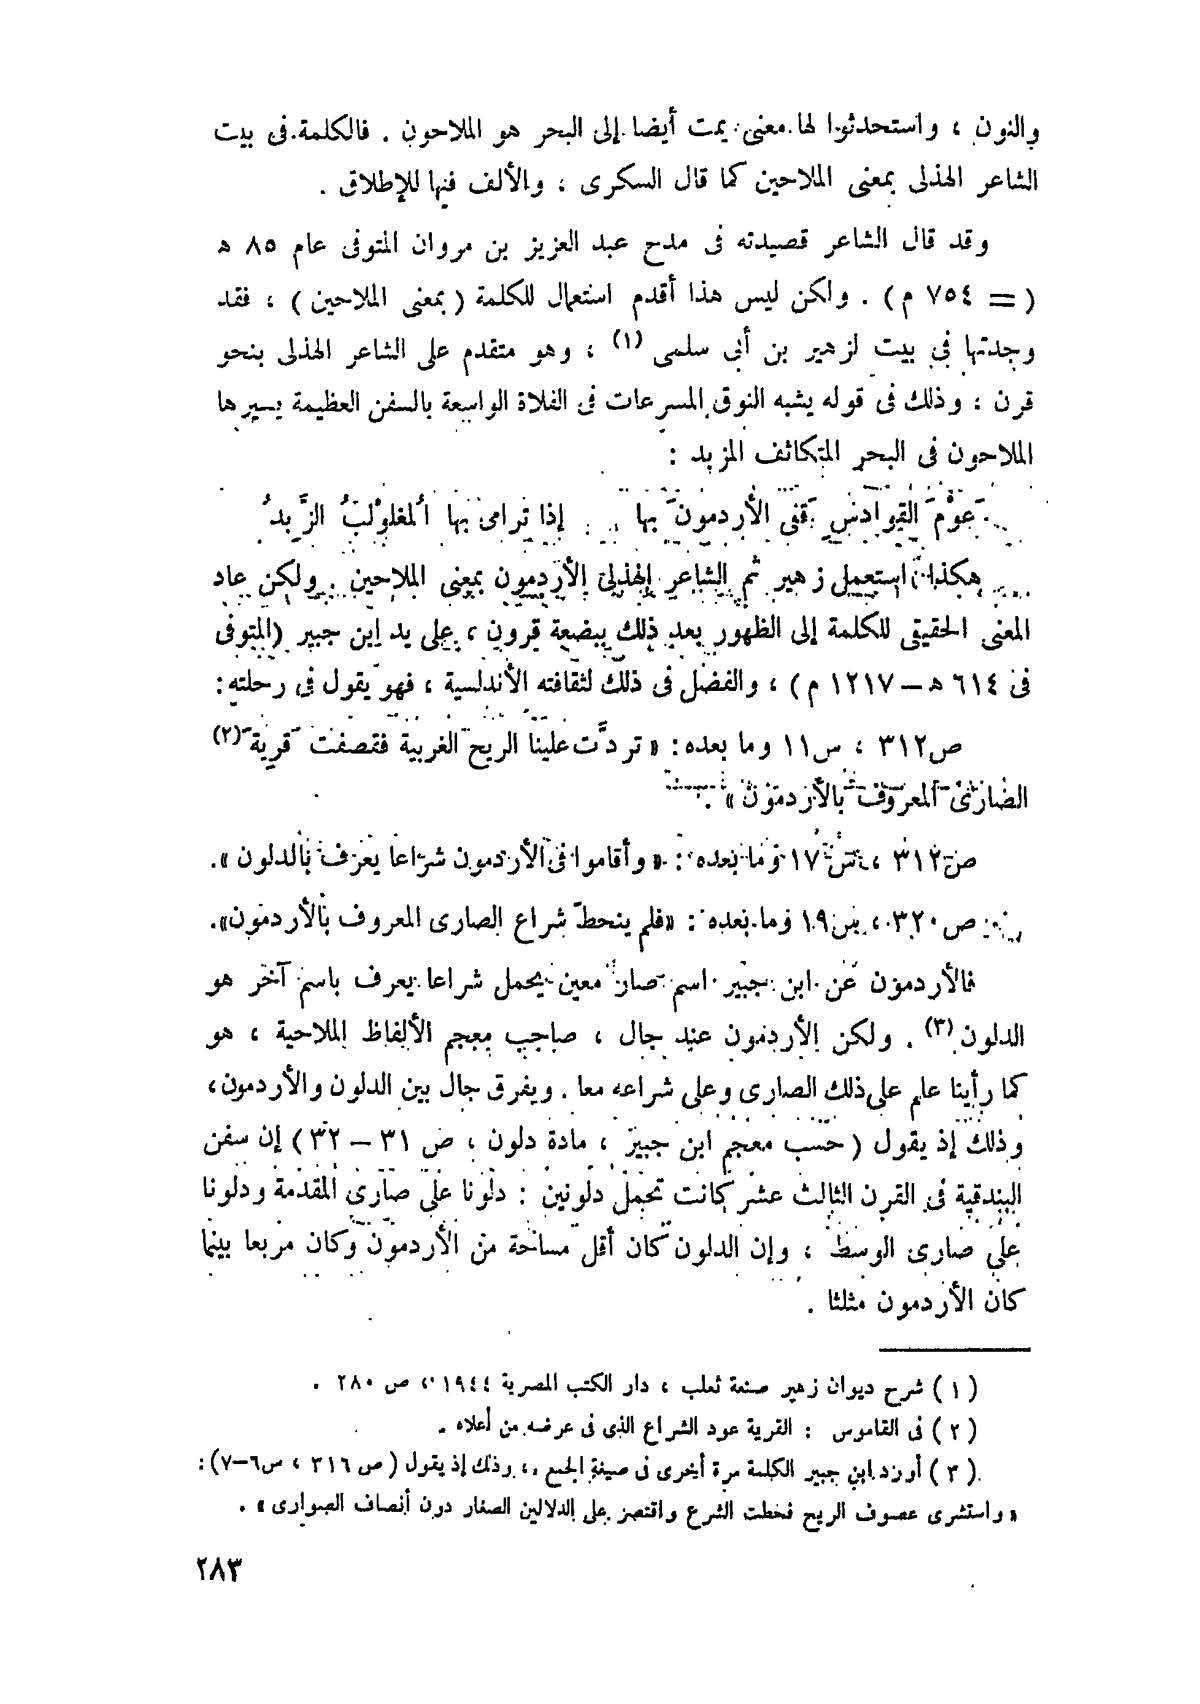 والنون ، واستحدثوا لها معنى يمت أيضا إلى البحر هو الملاحون . فالكلمة فى بيت
الشاعر الهذلى بمعنى الملاحين كما قال السكرى ، والألف فيها للإطلاق .
وقد قال الشاعر قصيدته فى مدح عبد العزيز بن مروان المتوفى عام ٨٥ هـ
( = ٧٥٤ م ) . ولكن ليس هذا أقدم استعمال للكلمة ( بمعنى الملاحين ) ، فقد
وجدتها فى بيت لزهير بن أبى سلمى (١) ، وهو متقدم على الشاعر الهذلى بنحو
قرن ؛ وذلك فى قوله يشبه النوق المسرعات فى الفلاة الواسعة بالسفن العظيمة يسيرها
الملاحون فى البحر المتكاثف المزبد :
عَوْمَ القَوَادسِ قَفَّى الأردمونَ بها إذا ترامى بها المُغلَوْلبُ الزَّبدُ
هكذا استعمل زهير ثم الشاعر الهذلى الأردمون بمعنى الملاحين . ولكن عاد
المعنى الحقيقى للكلمة إلى الظهور بعد ذلك ببضعة قرون ، على يد ابن جبير (المتوفى
فى ٦١٤ هـ – ١٢١٧ م ) ، والفضل فى ذلك لثقافته الأندلسية ، فهو يقول فى رحلته :
ص٣١٢ ، س١١ وما بعده : « تردَّت علينا الريح الغربية فقصفت قرية (٢)
الصارى المعروف بالأردمون » .
ص٣١٢ ، س١٧ وما بعده : « وأقاموا فى الأردمون شراعا يعرف بالدلون » .
ص٣٢٠ ، س١٩ وما بعده : «فلم ينحطّ شراع الصارى المعروف بالأردمون» .
فالأردمون عن ابن جبير اسم صار معين يحمل شراعا يعرف باسم آخر هو
الدلون (٣) . ولكن الأردمون عند جال ، صاحب معجم الألفاظ الملاحية ، هو
كما رأينا علم على ذلك الصارى وعلى شراعه معا . ويفرق جال بين الدلون والأردمون ،
وذلك إذ يقول ( حسب معجم ابن جبير ، مادة دلون ، ص ٣١ – ٣٢ ) إن سفن
البندقية فى القرن الثالث عشر كانت تحمل دلونين : دلونا على صارى المقدمة ودلونا
على صارى الوسط ، وإن الدلون كان أقل مساحة من الأردمون وكان مربعا بينما
كان الأردمون مثلثا .
( ١ ) شرح ديوان زهير صنعة ثعلب ، دار الكتب المصرية ١٩٤٤ ، ص ٢٨٠ .
( ٢ ) فى القاموس : القرية عود الشراع الذى فى عرضه من أعلاه .
( ٣ ) أورد ابن جبير الكلمة مرة أخرى فى صيغة الجمع ، وذلك إذ يقول ( ص ٣١٦ ، س٦–٧) :
« واستشرى عصوف الريح فحطت الشرع واقتصر على الدلالين الصغار دون أنصاف الصوارى » .
٢٨٣